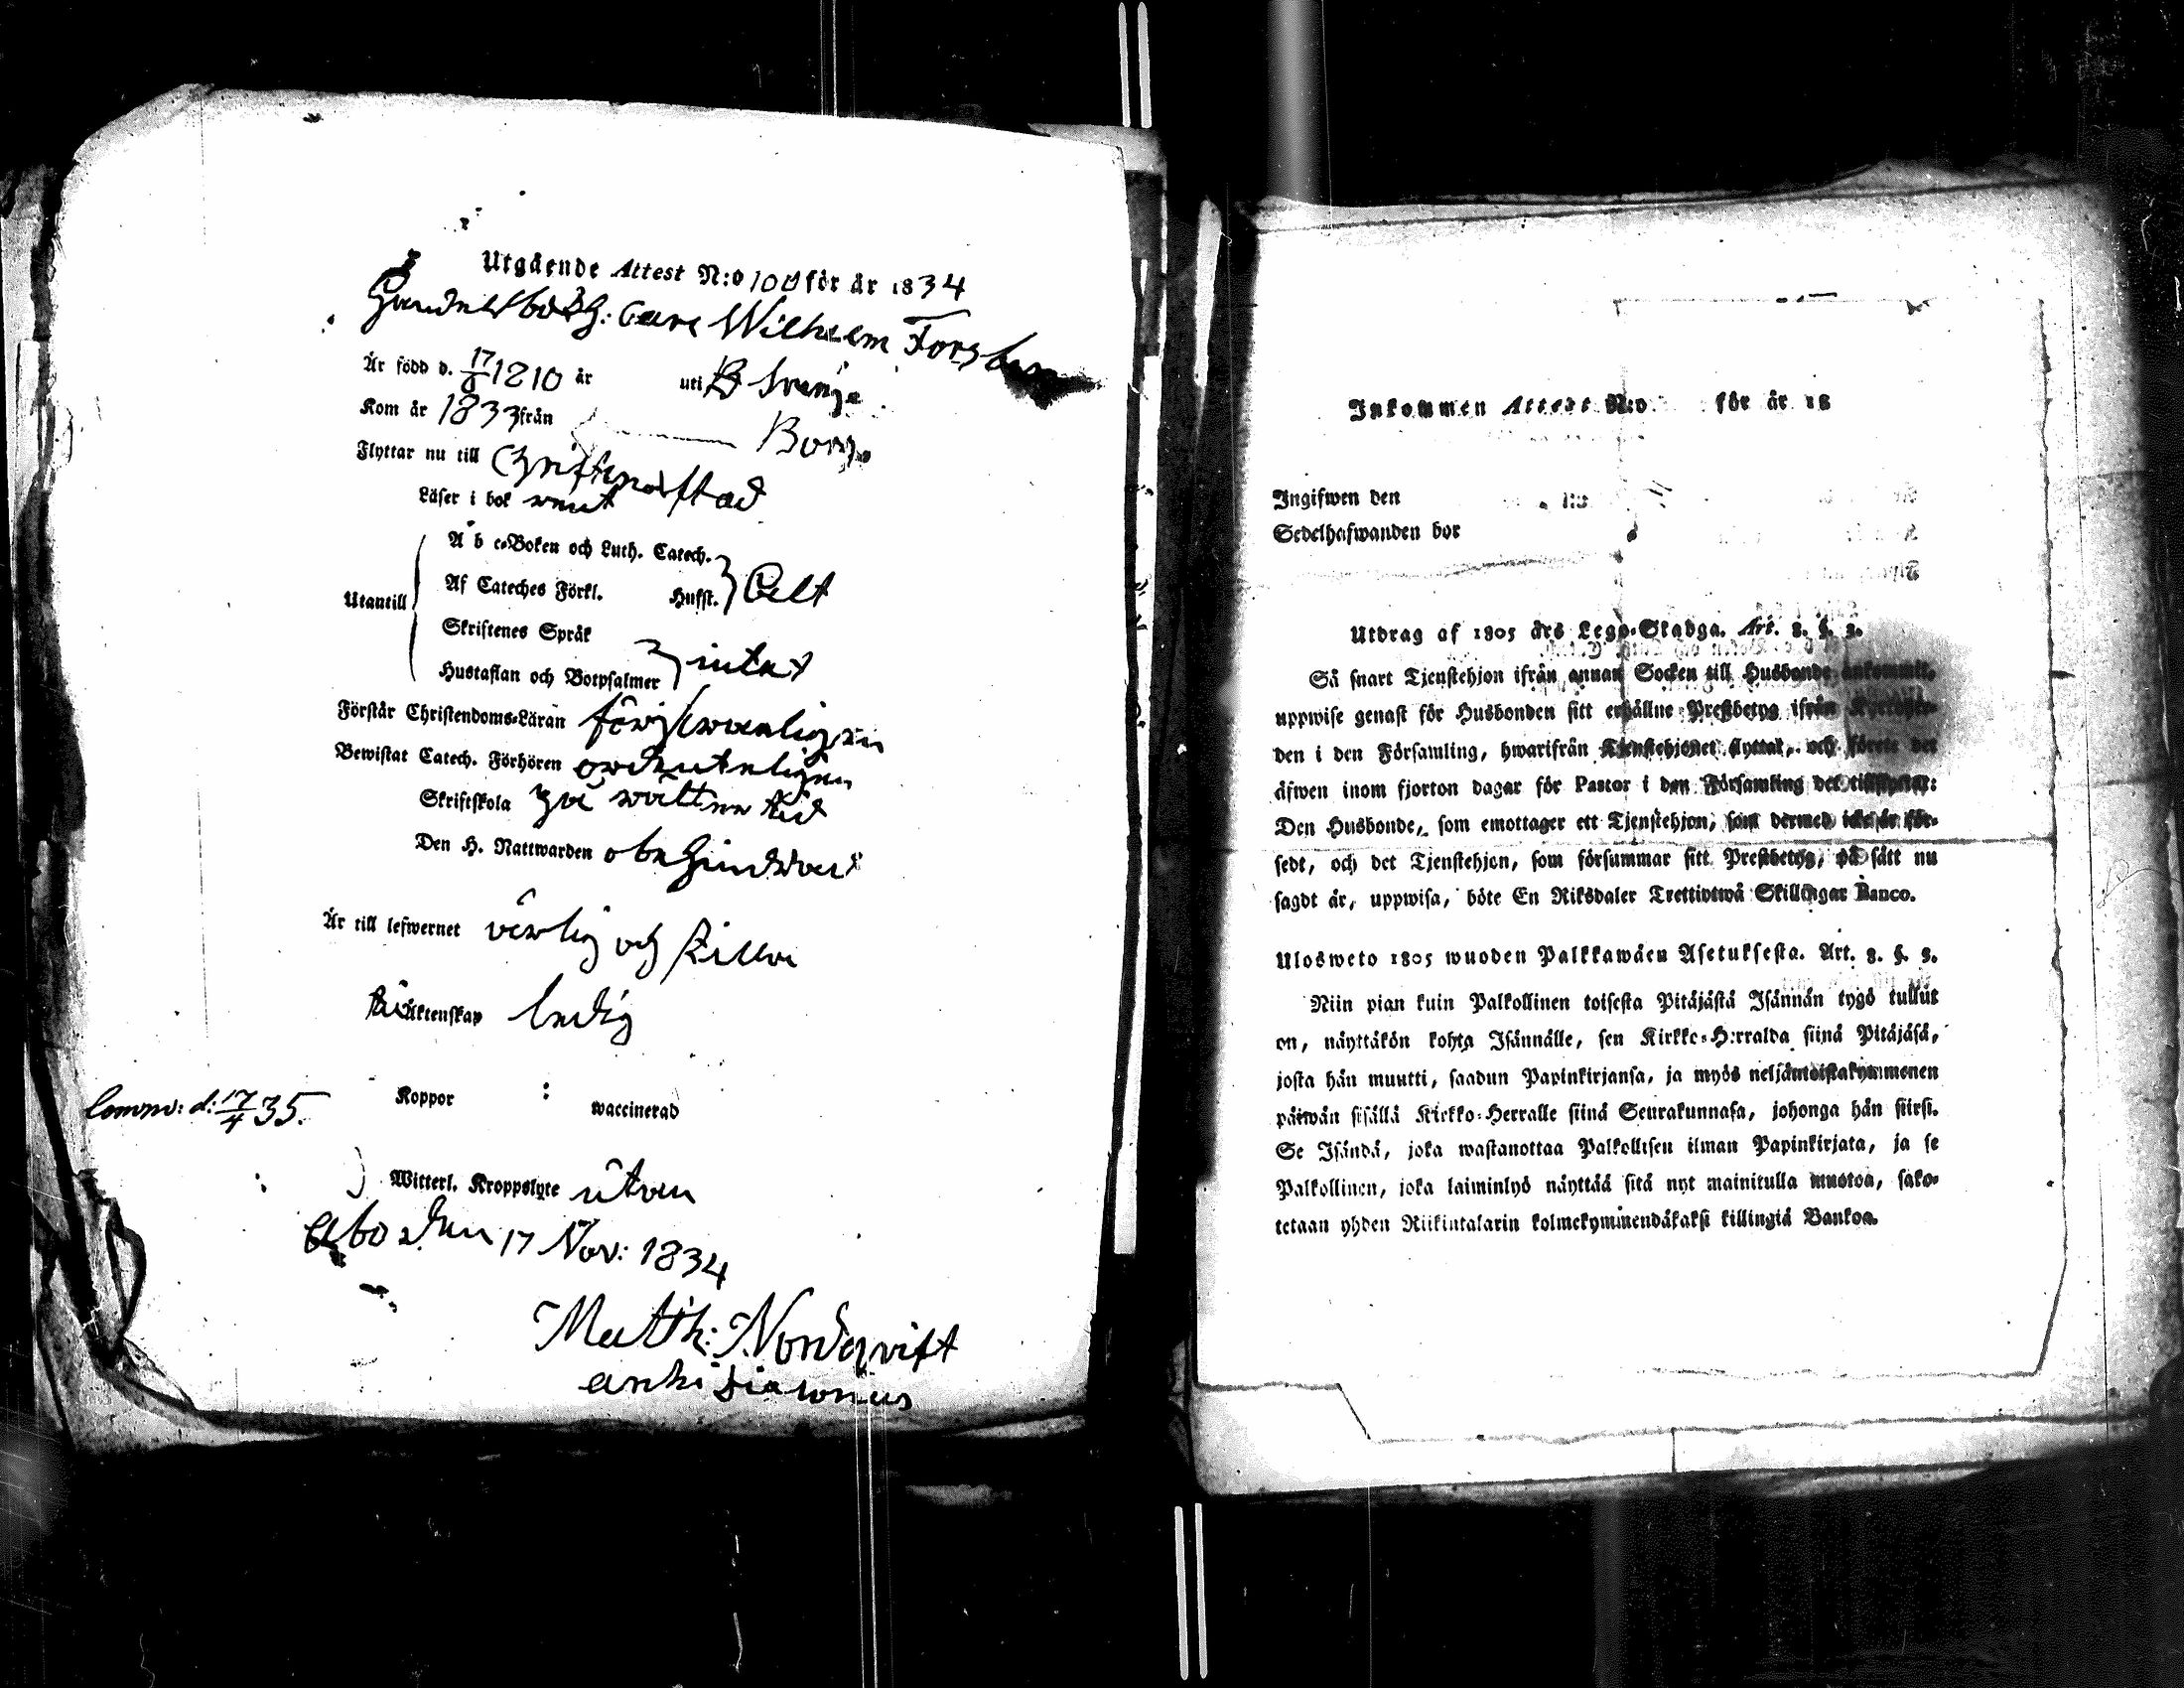 Utgående Attest N:o 100 för år 1834
Handelsbokh: Carl Wilhelm Fors
Är född d. 17/8 1810 år uti Sverige
Kom år 1833 från Borgo
Flyttar nu till Christinæstad
Läser i bok rent
A b c-Boken och Luth. Catech.
Af Cateches Förkl. Husst. Allt
Utantill
Skriftenes Språk
Hustaflan och Botpsalmer intet
Förstår Christendoms-Läran försvarligen
Bewistat Catech. Förhören ordenteligen
Skriftskola på rättan tid
Den H. Nattwarden obehindrad
Är till lefwernet ärlig och stilla
till Äktenskap ledig
Koppor waccinerad
Comm: d: 17/4 35.
Witterl. Kroppslyte utan
Åbo den 17 Nov: 1834
Math: Nordqvist
archi diaconus
Inkommen Attest N:o för år 18
Ingifwen den
Sedelhafwanden bor
Utdrag af 1805 års Lego-Stadga. Art. 8. §. 3.
Så snart Tjenstehjon ifrån annan Socken till Husbonde ankommit,
uppwise genast för Husbonden sitt erhållne Prestbetyg ifrån Kyrkoher-
den i den Församling, hwarifrån Tjenstehjonet flyttat, och förete det
äfwen inom fjorton dagar för Pastor i den Församling det tillflyttat:
Den Husbonde, som emottager ett Tjenstehjon, som dermed icke är för-
sedt, och det Tjenstehjon, som försummar sitt Prestbetyg, på sätt nu
sagdt är, uppwisa, böte En Riksdaler Trettiotwå Skillingar Banco.
Ulosweto 1805 wuoden Palkkawäen Asetuksesta. Art. 8. §. 3.
Niin pian kuin Palkollinen toisesta Pitäjästä Isännän tygö tullut
on, näyttäkön kohta Isännälle, sen Kirkko-Herralda siinä Pitäjäsä,
josta hän muutti, saadun Papinkirjansa, ja myös neljäntoistakymmenen
päiwän sisällä Kirkko-Herralle siinä Seurakunnasa, johonga hän siirsi.
Se Isändä, joka wastanottaa Palkollisen ilman Papinkirjata, ja se
Palkollinen, joka laiminlyö näyttää sitä nyt mainitulla muotoa, sako-
tetaan yhden Riikintalarin kolmekymmendäkaksi killingiä Bankoa.